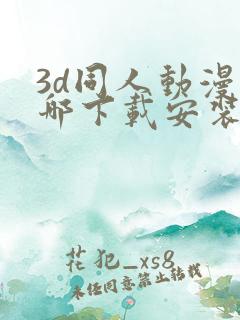 3d同人動漫
哪下載安裝
花犯_xs8
未经同意禁止转载